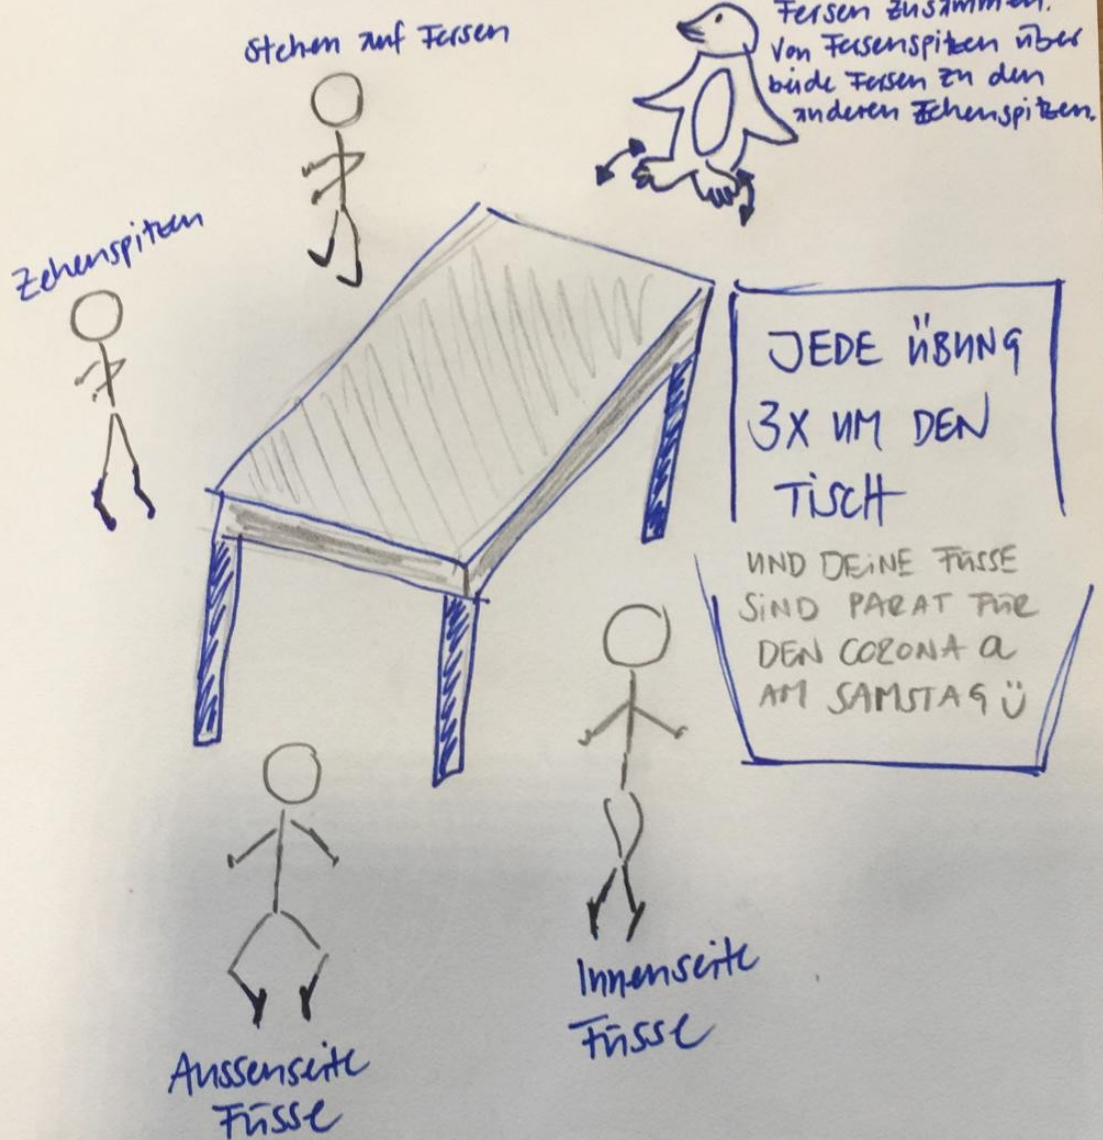 Stehen auf Fersen
Fersen zusammen.
Von Fersenspitzen über
beide Fersen zu den
anderen Zehenspitzen.
Zehenspitzen
JEDE ÜBUNG
3X UM DEN
TISCH
UND DEINE FÜSSE
SIND PARAT FÜR
DEN CORONA a
AM SAMSTAG Ü
Innenseite
Füsse
Aussenseite
Füsse